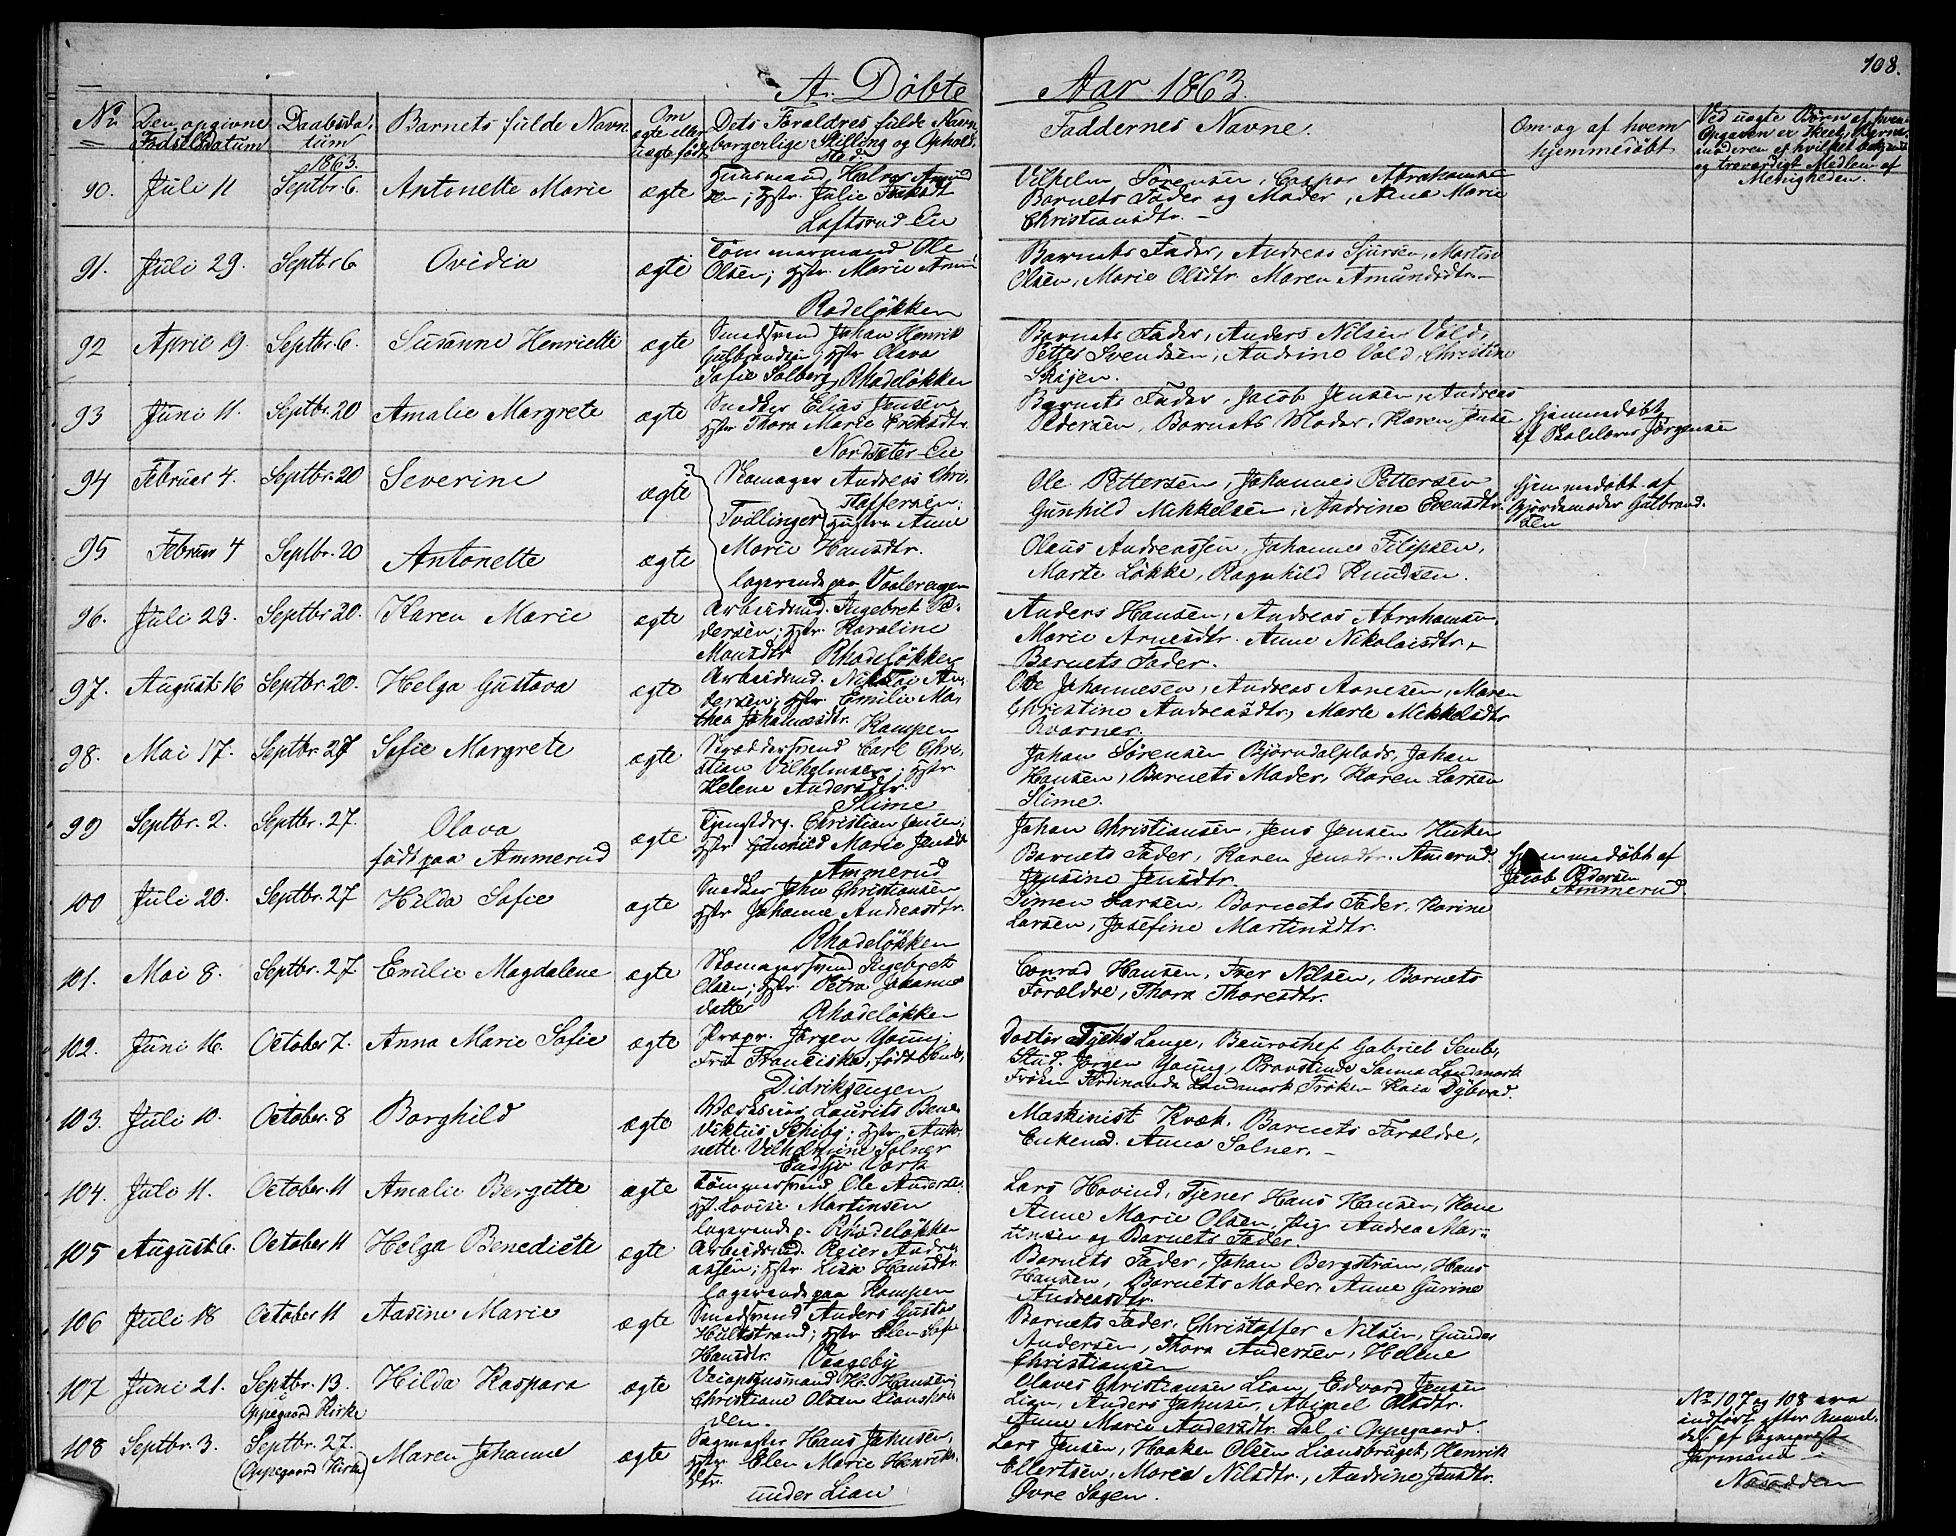 108.
A. Døbte Aar 1863.
No Den opgivne Fødselsdatum Daabsdatum Barnets fulde Navn Om ægte eller uægte født Dets Forældres fulde Navn, borgerlige Stilling og Opholdssted Faddernes Navne. Om og af hvem hjemmedøbt
Menigheden.
1863.
90. Juli 11 Septbr 6. Antonette Marie ægte Huusmand, Halvor
Hstr. Julie
Loftsrud Eie
Vilhelm Sørensen, Caspar Abrahamsen
Barnets Fader og Moder, Anna Marie
Christiansdtr. –
91. Juli 29. Septbr 6 Ovidia ægte Tømmermand Ole
Olsen; Hstr. Marie
Rodeløkken
Barnets Fader, Andreas Sjursen, Martin
Olsen, Marie Olsdtr. Maren Amundsdtr. –
92 April 19. Septbr. 6. Susanne Henriette ægte Smedsvend Johan Henrik
Gulbrandsen, Hstr Olava
Sofie Solberg, Rhodeløkken
Barnets Fader, Anders Nilsen Vold,
Petter Svendsen, Andrine Vold, Christine
93 Juni 11. Septbr. 20 Amalie Margrete ægte Snedker Elias Jensen
Hstr Thora Marie Eriksdtr.
Nordseter Eie
Barnets Fader, Jacob Jensen, Andreas
Pedersen, Barnets Moder, Karen
Hjemmedøbt
af Jørgensen
94 Februar 4. Septbr. 20 Severine ægte Skomager Andreas Chri-
stoffersen.
Tvillinger Hustru Anne
Ole Pettersen, Johannes Pettersen
Gunhild Mikkelsen, Andrine Evensdtr.
Hjemmedøbt af
Gjordemoder Gulbrand-
sen
95 Februar 4 Septbr. 20 Antonette ægte Marie Hansdtr.
logerende paa Vaalerengen
Olaus Andreassen, Johannes Filipsen,
Marte Løkke, Ragnhild Knudsen.
96. Juli 23. Septbr 20. Karen Marie ægte Arbeidsmd. Ingebret Pe-
dersen; Hstr. Karoline
Monsdtr Rhodeløkken
Anders Hansen, Andreas Abrahamsen
Marie Arnesdtr. Anne Nikolaisdtr. –
Barnets Fader.
97. August 16 Septbr 20. Helga Gustava ægte Arbeidsmd. Nikolai An-
dersen; Hstr. Emilie Ma-
thea Johannesdtr. Kampen
Ole Johannesen, Andreas Arnesen, Maren
Christine Andreasdtr, Marte Mikkelsdtr
Kværner.
98. Mai 17. Septbr 27 Sofie Margrete ægte Skræddersvend Carl Chri-
stian Vilhelmsen; Hstr
Helene Andersdtr.
Slime
Johan Sørensen Bjørndalplads, Johan
Hansen, Barnets Moder, Karen Larsen
Slime.
99 Septbr. 2. Septbr. 27. Olava
født paa Ammerud
ægte Tjenstdrg. Christian Jensen;
Hstr Gunhild Marie Jensdtr
Ammerud
Johan Christiansen, Jens Jensen Huken
Barnets Fader, Karen Jensdtr. Amerud.
Jensine Jensdtr.
Hjemmedøbt af
Jacob Pedersen
Ammerud.
100 Juli 20. Septbr. 27 Hilda Sofie ægte Snedker John Christiansen
Hstr Johanne Andreasdtr.
Rhodeløkken
Simen Larsen, Barnets Fader, Karine
Larsen, Josefine Martinsdtr.
101. Mai 8. Septbr. 27 Emilie Magdalene ægte Skomagersvend Ingebret
Olsen; Hstr. Petra Johannes
datter Rhodeløkken
Conrad Hansen, Iver Nilsen, Barnets
Forældre, Thora Thoresdtr.
102. Juni 16. October 7. Anna Marie Sofie ægte Propr. Jørgen Young;
Fru Franciska, født Semb,
Didriksengen
Doctor Lange, Bureauchef Gabriel Semb,
Stud. Jørgen Young, Provstinde Sanna Landmark
Frøken Ferdinanda Landmark Frøken Kaia Dybvad.
103. Juli 10. October. 8 Borghild ægte Laurits Bene-
Viktus Schiby; Hstr. Anto-
nette Vilhelmine Solner
Endsjø Værk
Maskinist Kvæk, Barnets Forældre,
Enkemd. Anna Solner. –
104. Juli 11. October. 11 Amalie Bergitte ægte Tømmersvend Ole
Hst. Lovise Martinsen
logerende p. Rhodeløkken
Lars Hovind, Tjener Hans Hansen, Kone
Anne Marie Olsen, Pig. Andrea Mar-
tinsen og Barnets Fader.
105 August 6. October 11 Helga Benedicte ægte Arbeidsmd. Reier Andre-
assen; Hstr. Lisa Hansdtr.
logerende paa Kampen
Barnets Fader, Johan Bergstrøm, Hans
Hansen, Barnets Moder, Anne Gurine
Andreasdtr.
106 Juli 18 October 11 Aasine Marie ægte Smedsvend Anders Gustav
Hultstrand; Hstr Elen Sofie
Hansdtr. Vaageby
Barnets Fader, Christoffer Nilsen, Gunder
Andersen, Thora Andersen, Helene
Christiansen
107 Juni 21. Septbr. 13.
Oppegaard Kirke
Hilda Kaspara ægte H. Hansen;
Christiane Olsen
Olaves Christiansen Lian, Edvard Jensen
Lian, Anders Johnsen, Abigael Olsdtr.
Anne Marie Andersdtr. Dal i Oppegaard.
108 Septbr. 3. Septbr. 27.
(Oppegaard Kirke)
Maren Johanne ægte Sagmester Hans Johnsen,
Hstr. Elen Marie Henriks-
dtr.
under Lian
Lars Jensen, Haaken Olsen Liansbruget, Henrik
Ellertsen, Maria Nilsdtr., Andrine Jensdtr.
Øvre Sagen.
No 107 og 108 ere
indført efter Anmel-
delse af Sognepræst
Jørmand –
Næsodden